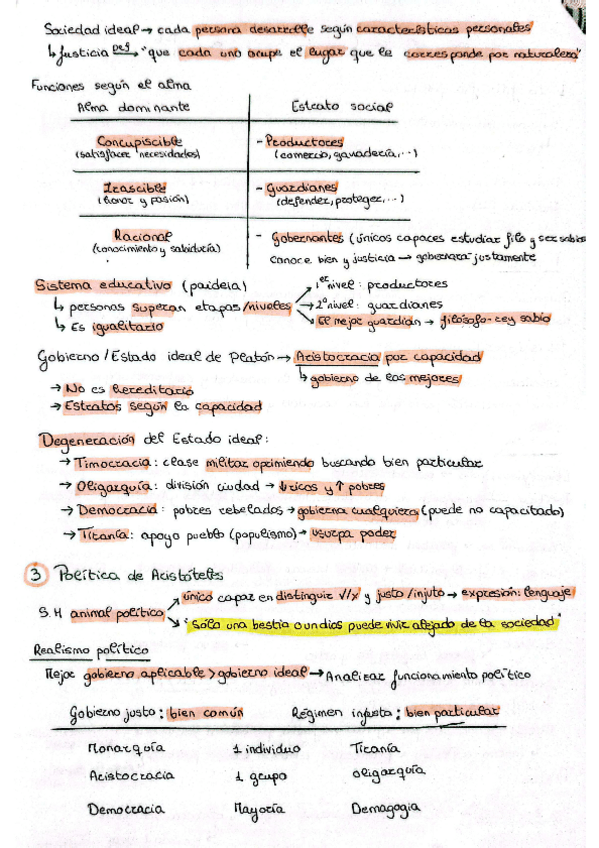 Sociedad ideal → cada persona desarrolle según características personales
↳ Justicia def→ "que cada uno ocupe el lugar que le corresponde por naturaleza"
Funciones según el alma
Alma dominante Estrato social
Concupiscible - Productores
(satisfacer necesidades) (comercio, ganadería,...)
Irascible - Guardianes
(honor y pasión) (defender, proteger,...)
Racional - Gobernantes (únicos capaces estudiar filo y ser sabios
(conocimiento y sabiduría) conoce bien y justicia → gobernará justamente
Sistema educativo (paideia) 1er nivel: productores
↳ personas superan etapas/niveles → 2º nivel: guardianes
↳ Es igualitario El mejor guardián → filósofo-rey sabio
Gobierno/Estado ideal de Platón → Aristocracia por capacidad
↳ gobierno de los mejores
→ No es hereditario
→ Estratos según la capacidad
Degeneración del Estado ideal:
→ Timocracia: clase militar oprimiendo buscando bien particular
→ Oligarquía: división ciudad → ↓ricos y ↑ pobres
→ Democracia: pobres rebelados → gobierna cualquiera (puede no capacitado)
→ Tiranía: apoyo pueblo (populismo) → usurpa poder
3 Política de Aristóteles
único capaz en distinguir √/x y justo/injuto → expresión: lenguaje
S.H animal político
"sólo una bestia o un dios puede vivir alejado de la sociedad"
Realismo político
Mejor gobierno aplicable > gobierno ideal → Analizar funcionamiento político
Gobierno justo: bien común Régimen injusto: bien particular
Monarquía 1 individuo Tiranía
Aristocracia 1 grupo oligarquía
Democracia Mayoría Demagogia